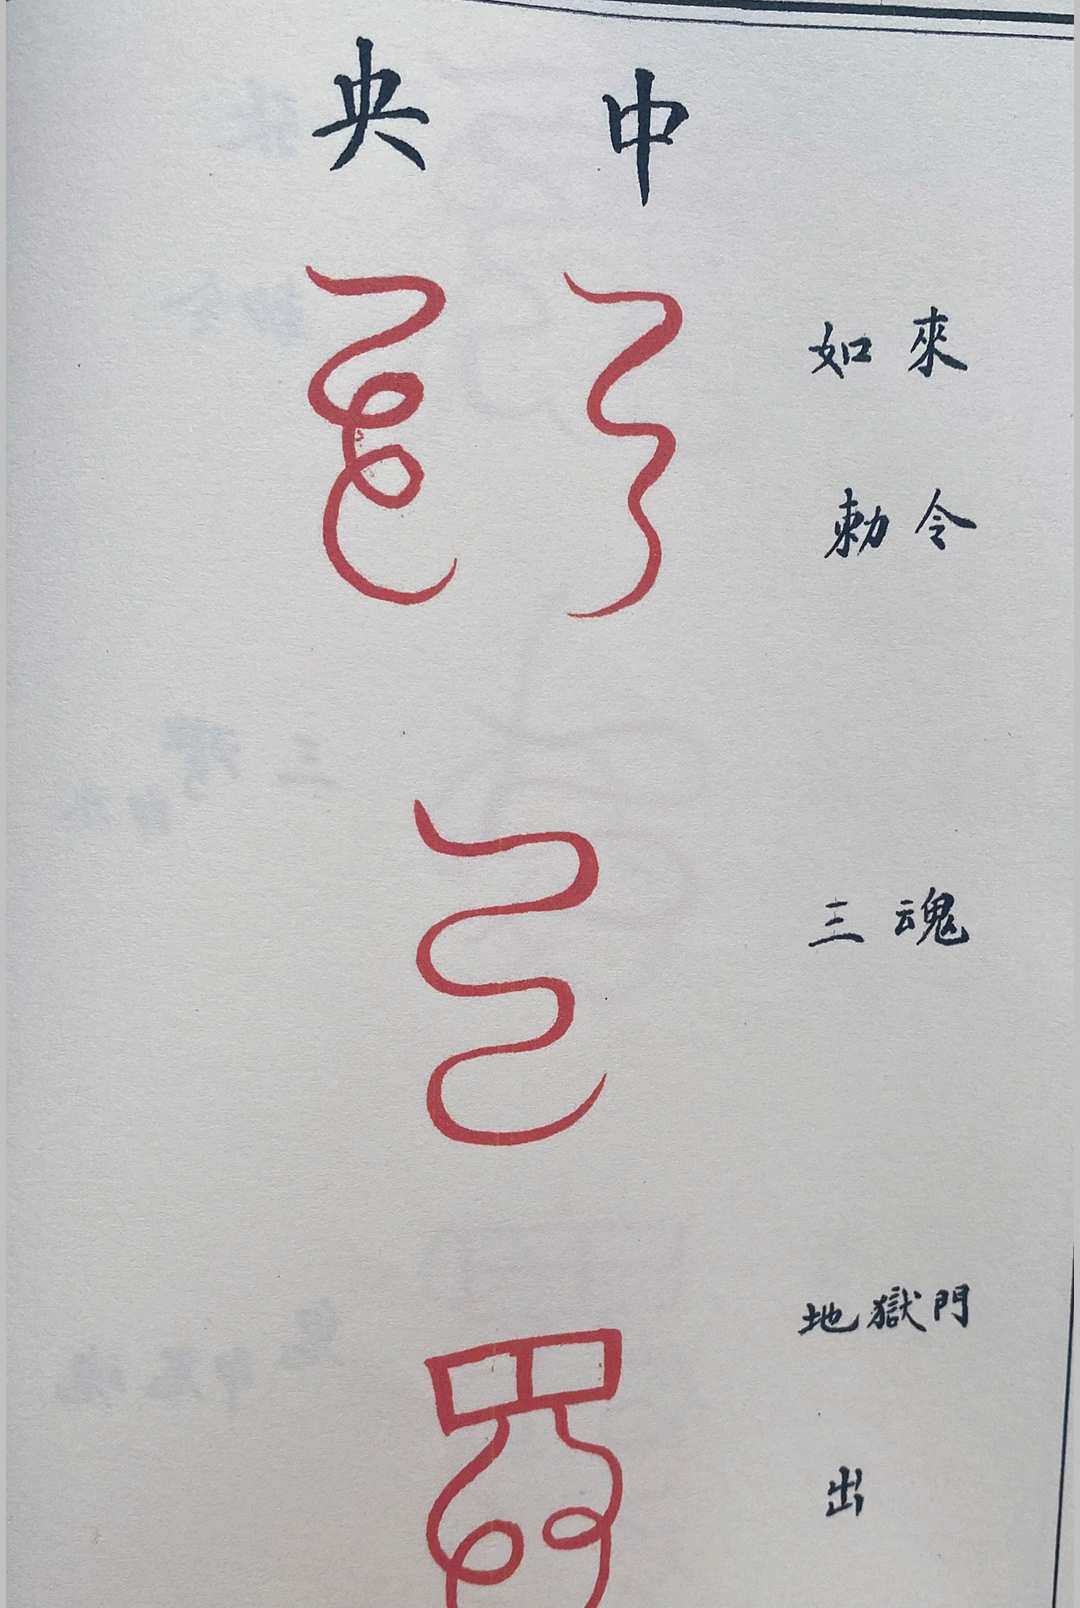 中央
如來
勅令
三魂
地獄門
出